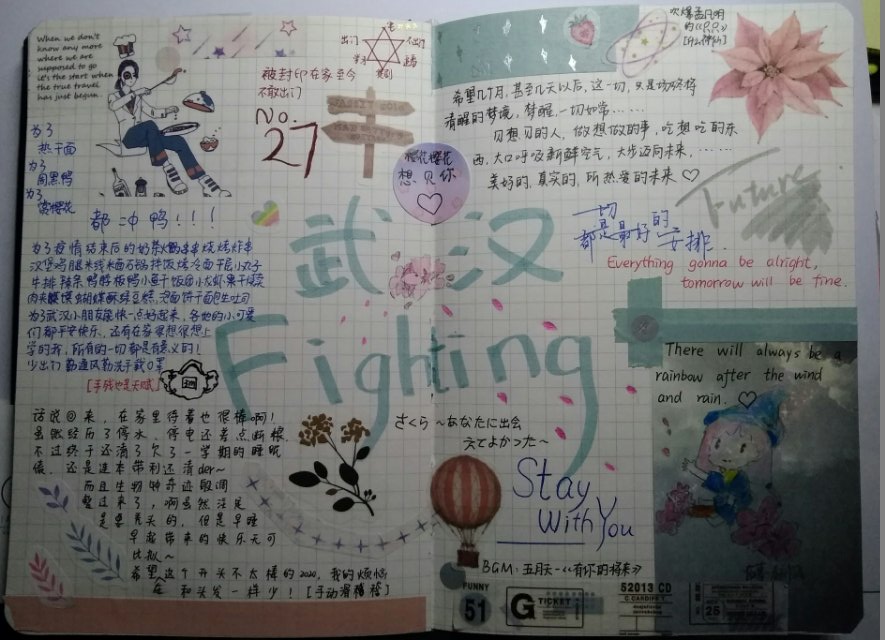 When we don't
know any more
where we are
supposed to go
it's the start when
the true travel
has just begun.
为了
热干面
为了
周黑鸭
为了
赏樱花
都冲鸭!!!
被封印在家至今
不敢出门
No.
27
出门
为了疫情结束后的奶茶火锅串串烧烤炸串
汉堡鸡腿米线米面石锅拌饭烤冷面千层小丸子
为了武汉小朋友能快一点好起来,各地的小可爱
们都平安快乐,还有在家里很想很想上
学的我,所有的一切都是有意义的!
少出门勤通风勤洗手戴口罩
话说回来,在家里待着也很棒啊!
虽然经历了停水、停电还差点断粮
不过终于还清了欠了一学期的睡眠
债,还是连本带利还清der~
而且生物钟奇迹般调
整过来了,啊虽然没足
早起带来的快乐无可
比拟~
希望这个开头不太棒的2020,我的烦恼
会和头发一样少![手动滑稽]
武汉
Fighting
樱花樱花
想见你
希望几个月,甚至几天以后,这一切,只是场终将
清醒的梦境,梦醒,一切如常……
见想见的人,做想做的事,吃想吃的东
西,大口呼吸新鲜空气,大步迈向未来,……
美好的,真实的,所热爱的未来♡
Future
一切
都是最好的安排.
Everything gonna be alright,
tomorrow will be fine.
There will always be a
rainbow after the wind
and rain. ♡
さくら~あなたに出会
えてよかった~
Stay
With You
BGM:五月天-《有你的将来》
FUNNY
51
G TICKET
52013 CD
G CARDIFF T
25